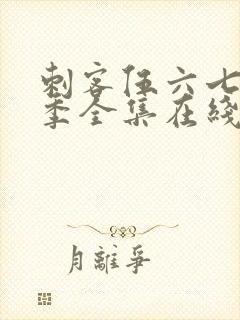 刺客伍六七
季全集在綫
月離爭